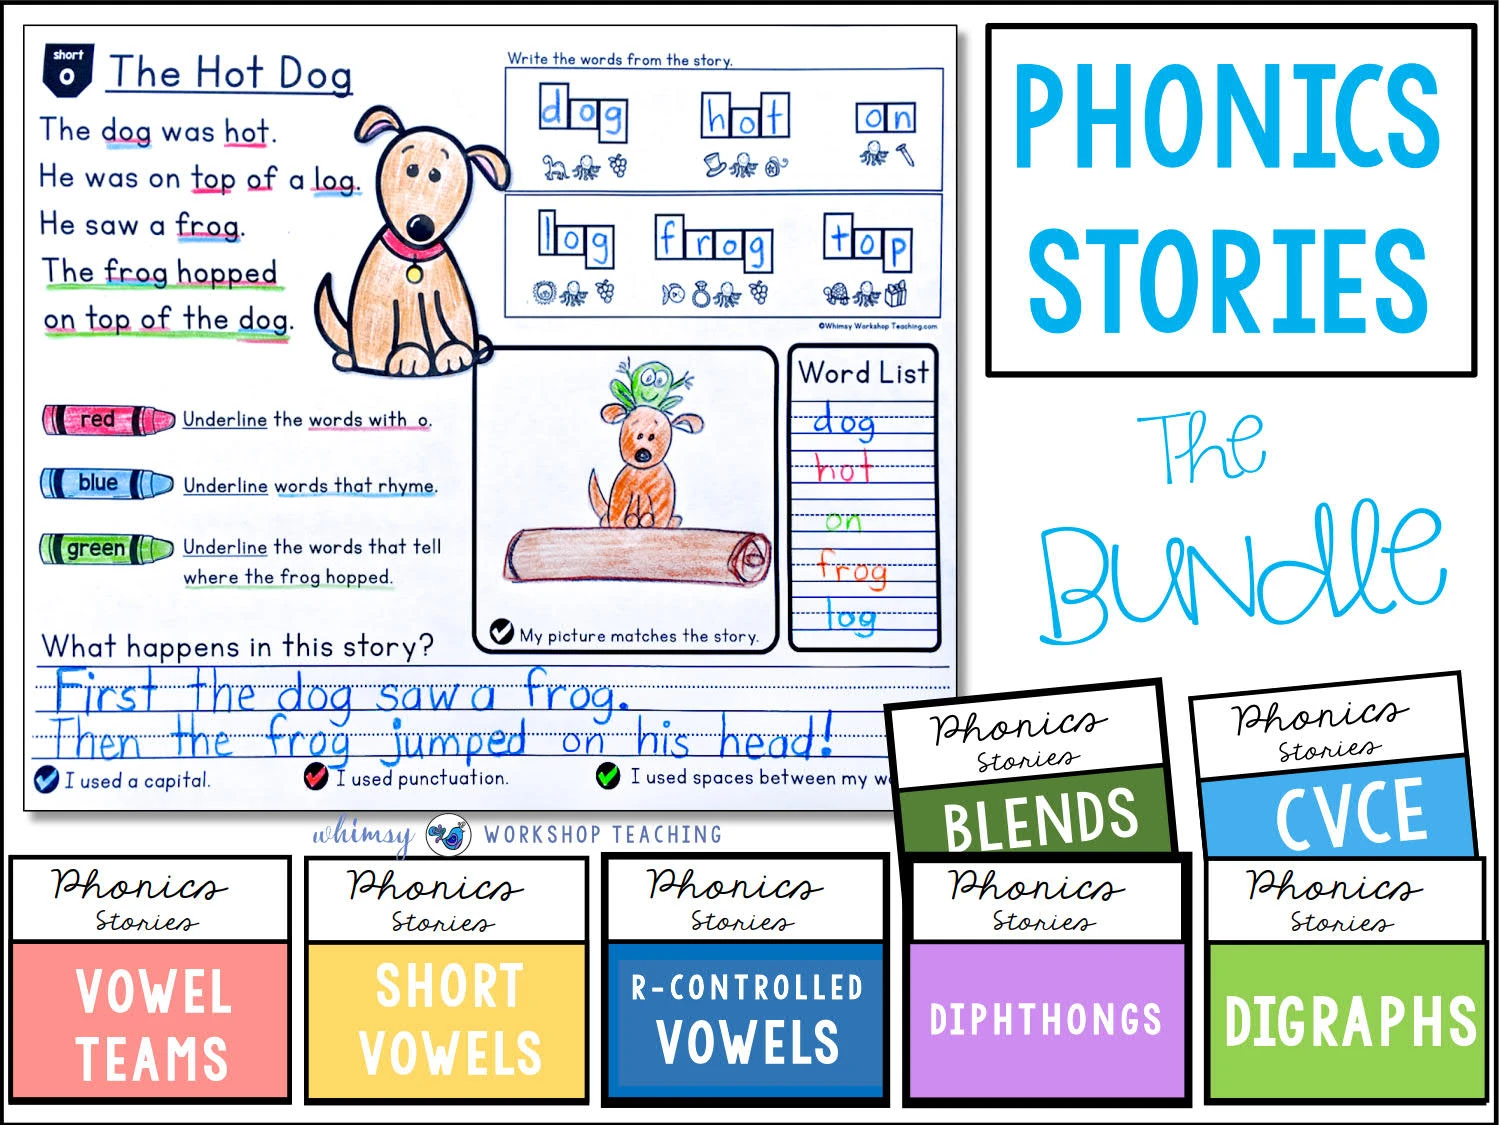 short
o
The Hot Dog
The dog was hot.
He was on top of a log.
He saw a frog.
The frog hopped
on top of the dog.
red
Underline the words with o.
blue
Underline words that rhyme.
green
Underline the words that tell
where the frog hopped.
Write the words from the story.
dog hot on
log frog top
©Whimsy Workshop Teaching.com
My picture matches the story.
Word List
dog
hot
on
frog
log
What happens in this story?
First the dog saw a frog.
Then the frog jumped on his head!
I used a capital.
I used punctuation.
I used spaces between my
whimsy WORKSHOP TEACHING
PHONICS
STORIES
The
Bundle
Phonics
Stories
BLENDS
Phonics
Stories
CVCE
Phonics
Stories
VOWEL
TEAMS
Phonics
Stories
SHORT
VOWELS
Phonics
Stories
R-CONTROLLED
VOWELS
Phonics
Stories
DIPHTHONGS
Phonics
Stories
DIGRAPHS